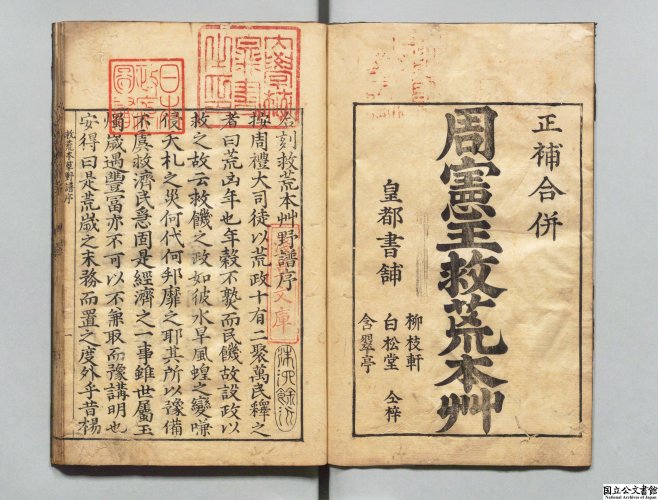 正補合併
周憲王救荒本艸
皇都書舗
柳枝軒
白松堂 仝梓
含翠亭
合刻救荒本艸野譜序
周禮大司徒以荒政十有二聚萬民釋之
者曰荒凶年也年穀不熟而民饑故設政以
救之故云救饑之政如彼水旱風蝗之變嗛
侵夭札之災何代何邦靡之耶其所以豫備
不虞救濟民急固是經濟之一事雖世屬玉
燭歲遇豐冨亦不可以不兼取而豫講明也
安得曰是荒歲之末務而置之度外乎昔楊
救荒本艸野譜序
一
日本
文庫
国立公文書館
National Archives of Japan